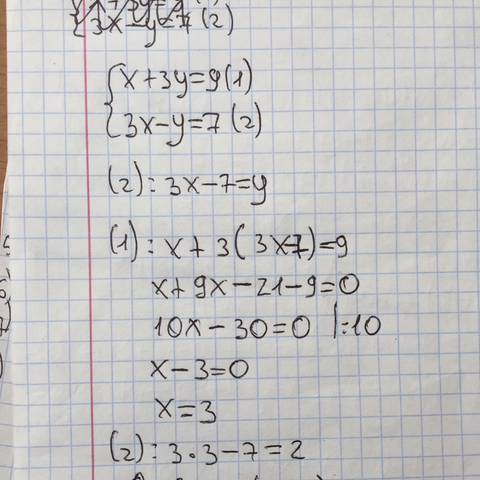 3x-y=7 (2)
x+3y=9(1)
3x-y=7(2)
(2): 3x-7=y
(1): x+3(3x-7)=9
x+9x-21-9=0
10x-30=0 |:10
x-3=0
x=3
(2): 3·3-7=2